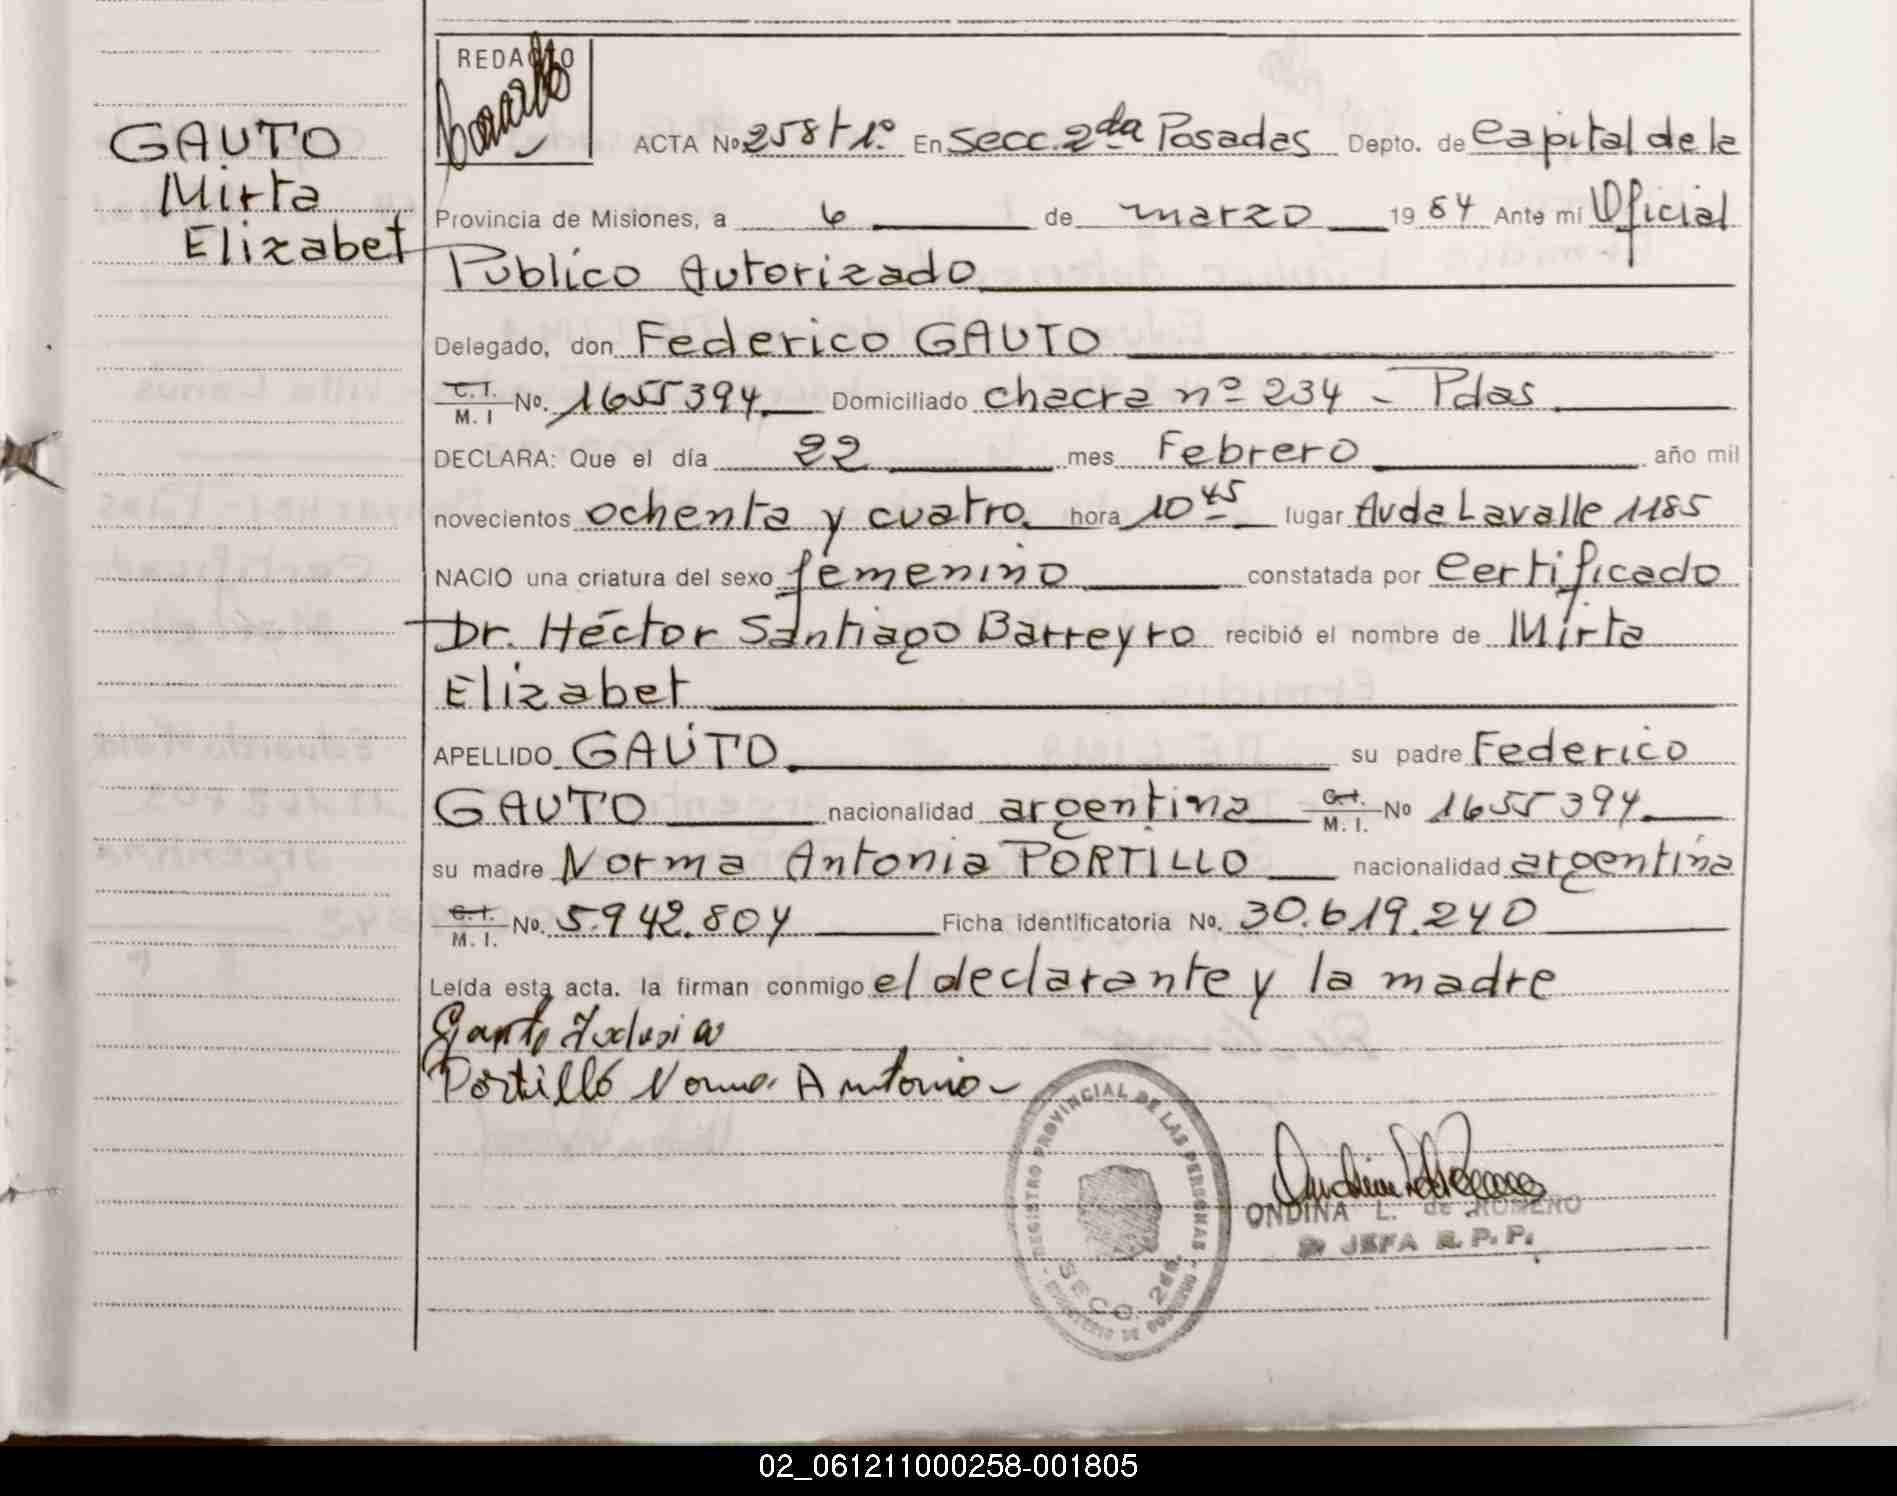 REDACTO
GAUTO
Mirta
Elizabet
ACTA Nº 258 t 1º En Secc. 2da Posadas Depto. de Capital de la
Provincia de Misiones, a 6 de marzo 1984 Ante mí Oficial
Público Autorizado
Delegado, don Federico GAUTO
C.I. M.I No. 1655394 Domiciliado chacra nº 234 - Pdas
DECLARA: Que el día 22 mes Febrero año mil
novecientos ochenta y cuatro hora 10 45 lugar Avda Lavalle 1185
NACIO una criatura del sexo femenino constatada por Certificado
Dr. Héctor Santiago Barreyro recibió el nombre de Mirta
Elizabet
APELLIDO GAUTO su padre Federico
GAUTO nacionalidad argentina C.I. M.I. No 1655394
su madre Norma Antonia PORTILLO nacionalidad argentina
C.I. M.I. No. 5.942.804 Ficha identificatoria No. 30.619.240
Leída esta acta. la firman conmigo el declarante y la madre
Portillo Norma Antonia
REGISTRO PROVINCIAL DE LAS PERSONAS
SECC. 2da.
MINISTERIO DE GOBIERNO
ONDINA L. de ROMERO
JEFA R.P.P.
02_061211000258-001805